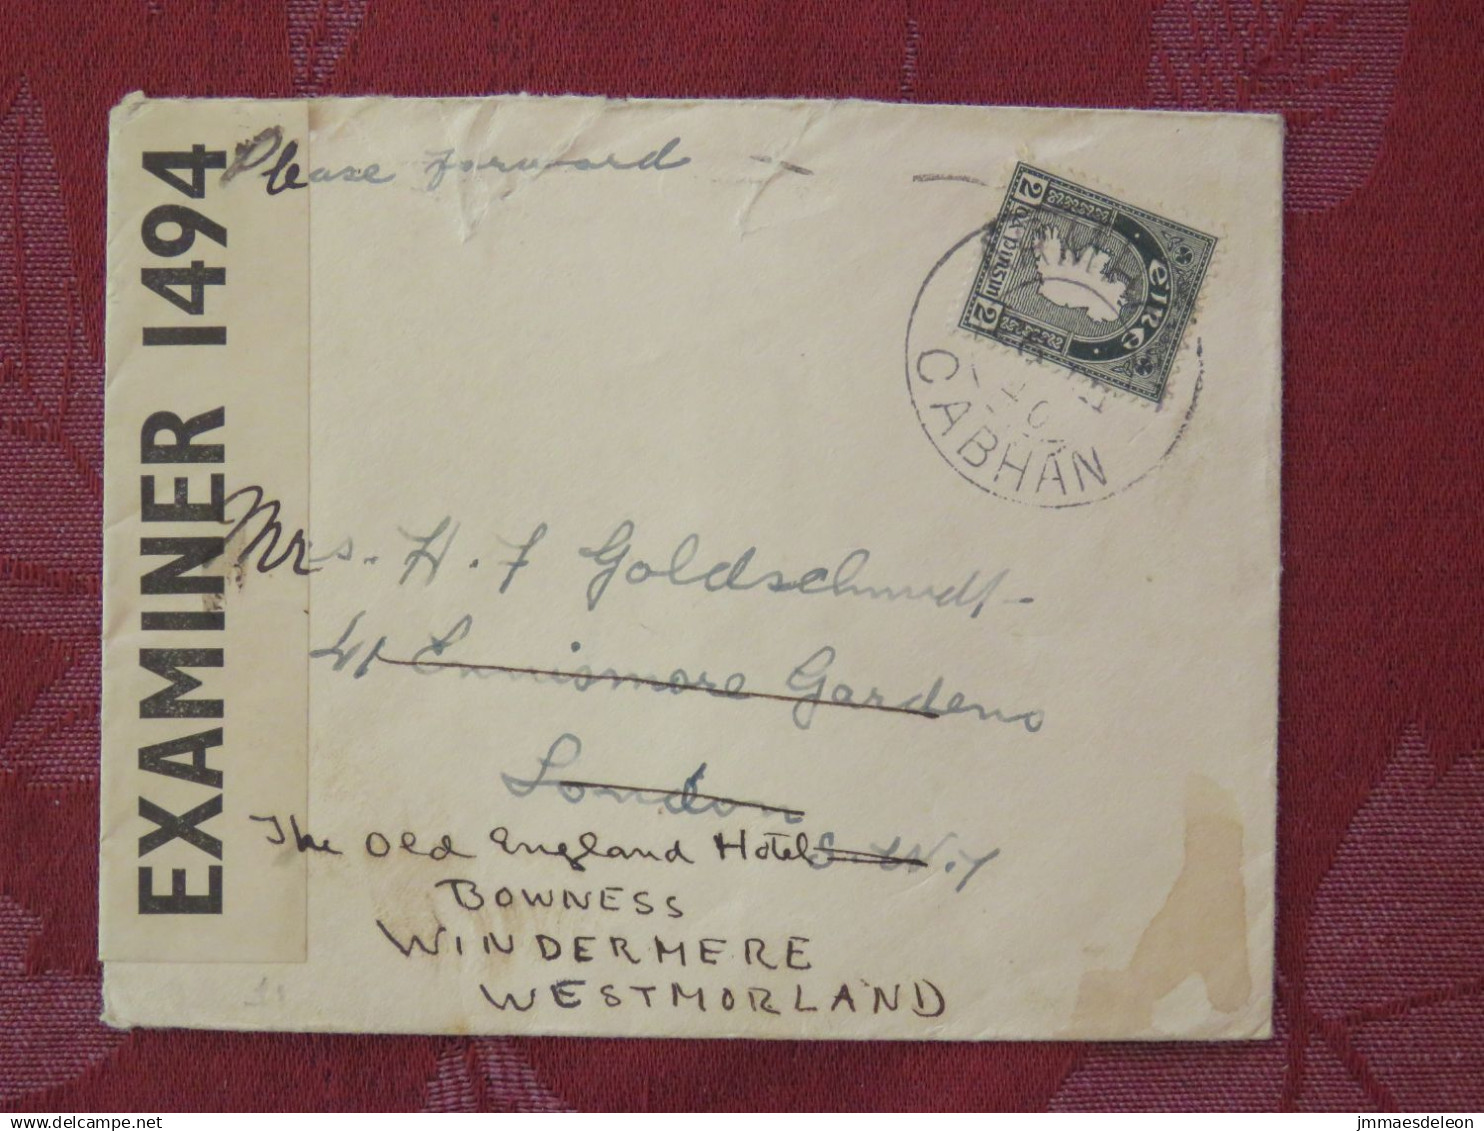 EXAMINER 1494
Please forward
eire
2 dá pinsin 2
40
CABHÁN
Mrs. H. F Goldschmidt
41 Ennismore Gardens
London
S.W.7
The Old England Hotel
BOWNESS
WINDERMERE
WESTMORLAND
jmmaesdeleon